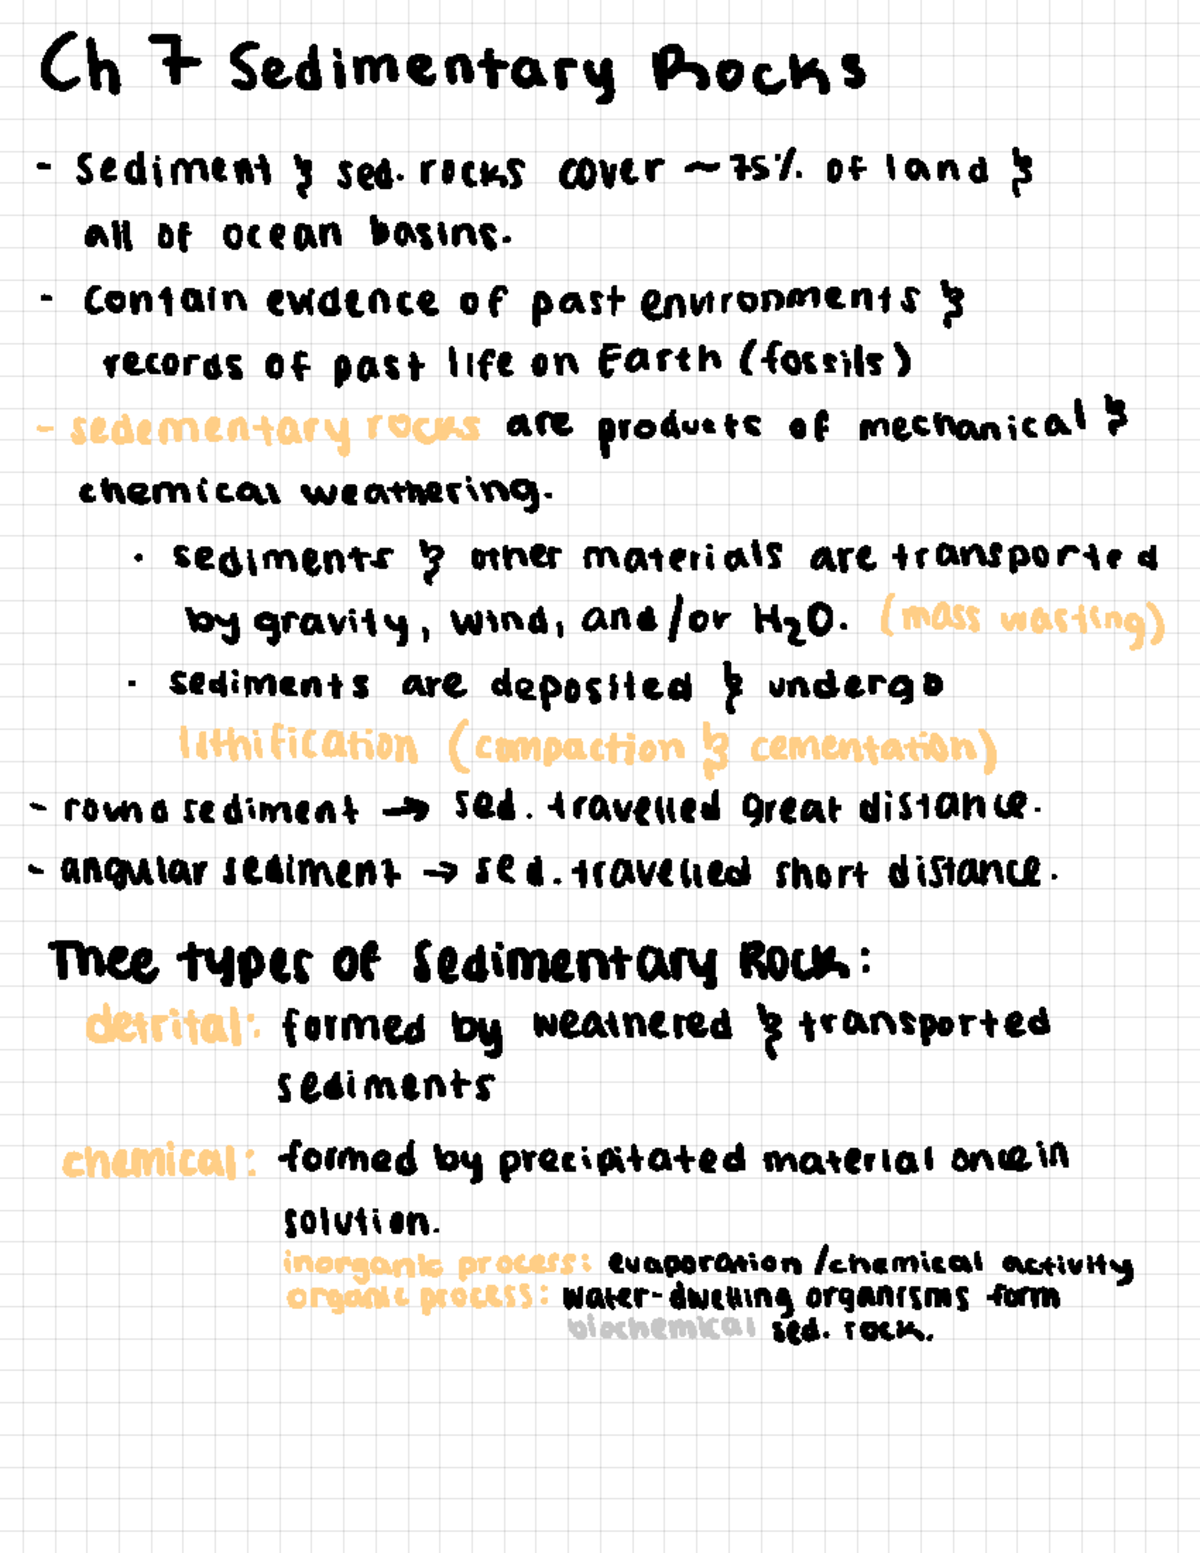 Ch 7 Sedimentary Rocks
- sediment & sed. rocks cover ~75% of land &
all of ocean basins.
- contain evidence of past environments &
records of past life on Earth (fossils)
- sedementary rocks are products of mechanical &
chemical weathering.
· sediments & other materials are transported
by gravity, wind, and/or H₂O. (mass wasting)
· sediments are deposited & undergo
lithification (compaction & cementation)
- round sediment → sed. travelled great distance.
- angular sediment → sed. travelled short distance.
Thee types of Sedimentary Rock:
detrital: formed by weathered & transported
sediments
chemical: formed by precipitated material once in
solution.
inorganic process: evaporation /chemical activity
organic process: water-dwelling organisms form
biochemical sed. rock.